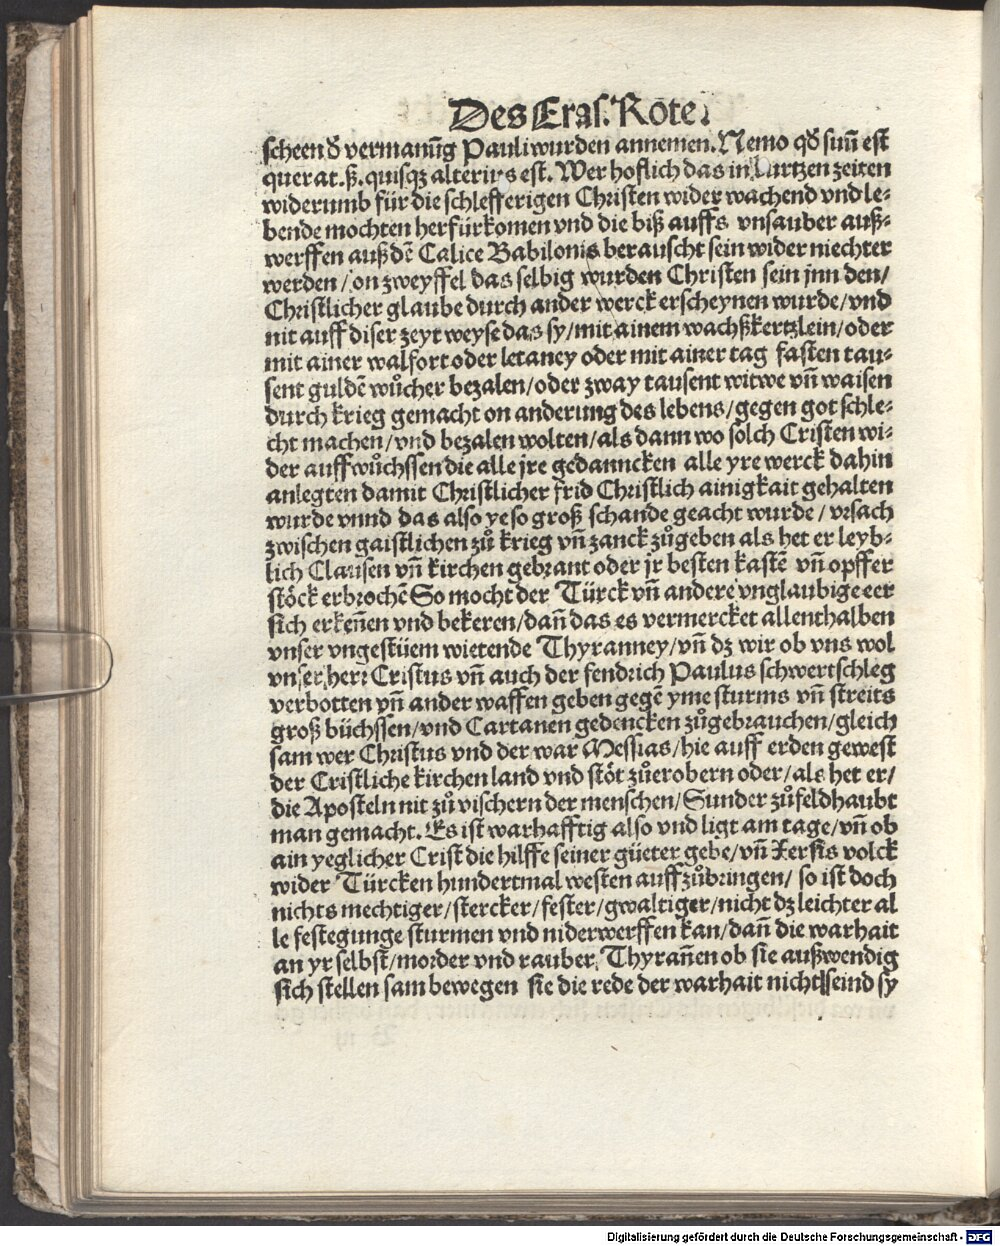 Des Eras. Rote.
scheen ð vermanũg Pauli wurden annemen. Nemo qð suũ est
querat. ß. quisqz alterius est. Wer hoflich das in kurtzen zeiten
widerumb für die schlefferigen Christen wider wachend vnd le⸗
bende mochten herfürkomen vnd die biß auffs vnsauber auß⸗
werffen auß dē Calice Babilonis berauscht sein wider niechter
werden / on zweyffel das selbig wurden Christen sein jnn den/
Christlicher glaube durch ander werck erscheynen wurde/vnd
nit auff diser zeyt weyse das sy/mit ainem wachßkertzlein/oder
mit ainer walfort oder letaney oder mit ainer tag fasten tau⸗
sent guldē wůcher bezalen/oder zway tausent witwe vñ waisen
durch krieg gemacht on anderung des lebens/gegen got schle⸗
cht machen/vnd bezalen wolten/als dann wo solch Cristen wi⸗
der auffwůchssen die alle jre gedanncken alle yre werck dahin
anlegten damit Christlicher frid Christlich ainigkait gehalten
wurde vnnd das also ye so groß schande geacht wurde / vrsach
zwischen gaistlichen zů krieg vñ zanck zůgeben als het er leyb⸗
lich Clausen vñ kirchen gebrant oder jr besten kastē vñ opffer
stöck erbrochē So mocht der Türck vñ andere vnglaubige eer
sich erkeñen vnd bekeren/dañ das es vermercket allenthalben
vnser vngestüem wietende Thyranney/vñ dz wir ob vns wol
vnser herr Cristus vñ auch der fendrich Paulus schwertschleg
verbotten vñ ander waffen geben gegē yme sturms vñ streits
groß büchssen/vnd Cartanen gedencken zůgebrauchen/gleich
sam wer Christus vnd der war Messias/hie auff erden gewest
der Cristliche kirchen land vnd stöt zůerobern oder/als het er/
die Aposteln nit zů vischern der menschen/Sunder zů feldhaubt
man gemacht. Es ist warhafftig also vnd ligt am tage/vñ ob
ain yeglicher Crist die hilffe seiner güeter gebe/vñ Xersis volck
wider Türcken hundertmal westen auffzůbringen/ so ist doch
nichts mechtiger/stercker/fester/gwaltiger/nicht dz leichter al
le festegunge sturmen vnd niderwerffen kan/dañ die warhait
an yr selbst/morder vnd rauber, Thyrañen ob sie außwendig
sich stellen sam bewegen sie die rede der warhait nicht seind sy
Digitalisierung gefördert durch die Deutsche Forschungsgemeinschaft - DFG